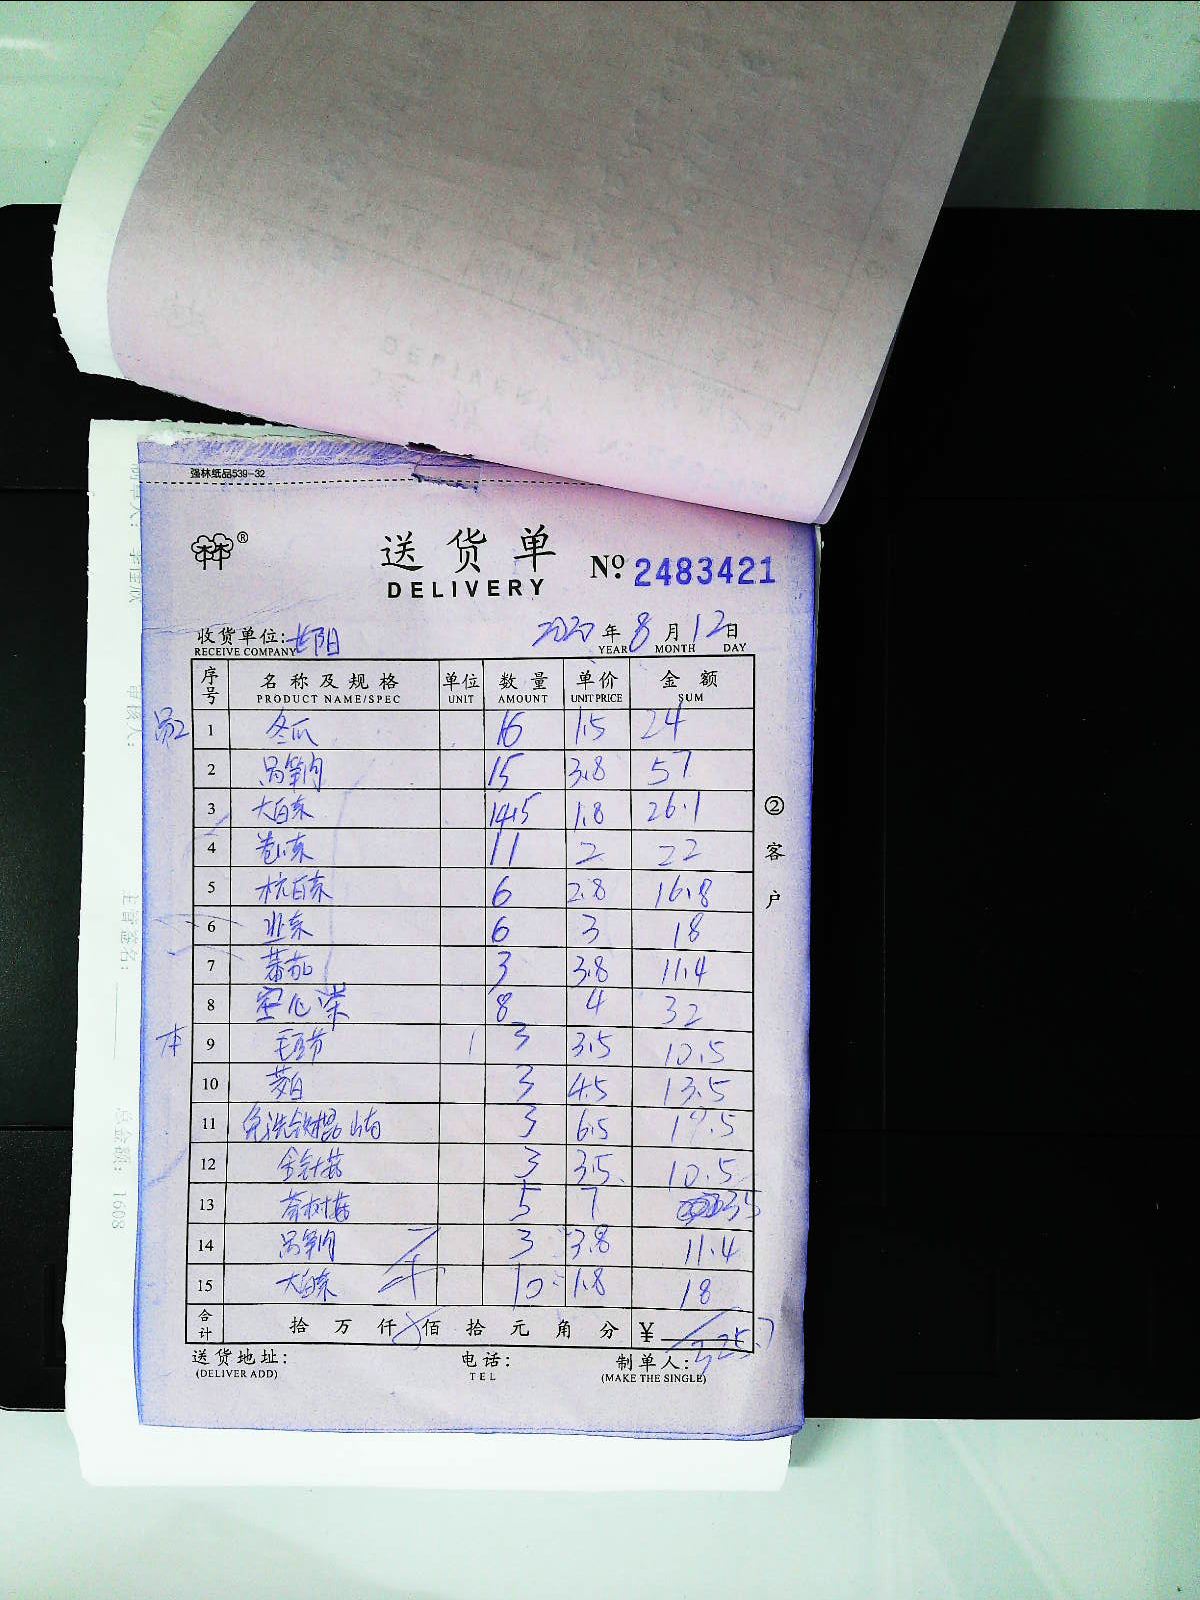 强林纸品539-32
送货单
DELIVERY
№: 2483421
收货单位: 长阳 2020年8月12日
RECEIVE COMPANY YEAR MONTH DAY
序号 名称及规格 单位 数量 单价 金额
PRODUCT NAME/SPEC UNIT AMOUNT UNIT PRICE SUM
1 冬瓜 16 1.5 24
2 莴笋肉 15 3.8 57
3 大白菜 14.5 1.8 26.1
4 卷心菜 11 2 22
5 杭白菜 6 2.8 16.8
6 韭菜 6 3 18
7 蕃茄 3 3.8 11.4
8 空心菜 8 4 32
9 毛豆节 3 3.5 10.5
10 茭白 3 4.5 13.5
11 3 6.5 19.5
12 金针菇 3 3.5 10.5
13 茶树菇 5 7 35
14 莴笋肉 3 3.8 11.4
15 大白菜 10 1.8 18
合计 拾 万 仟 佰 拾 元 角 分 ¥ 325.7
送货地址: 电话: 制单人:
(DELIVER ADD) TEL (MAKE THE SINGLE)
②客户